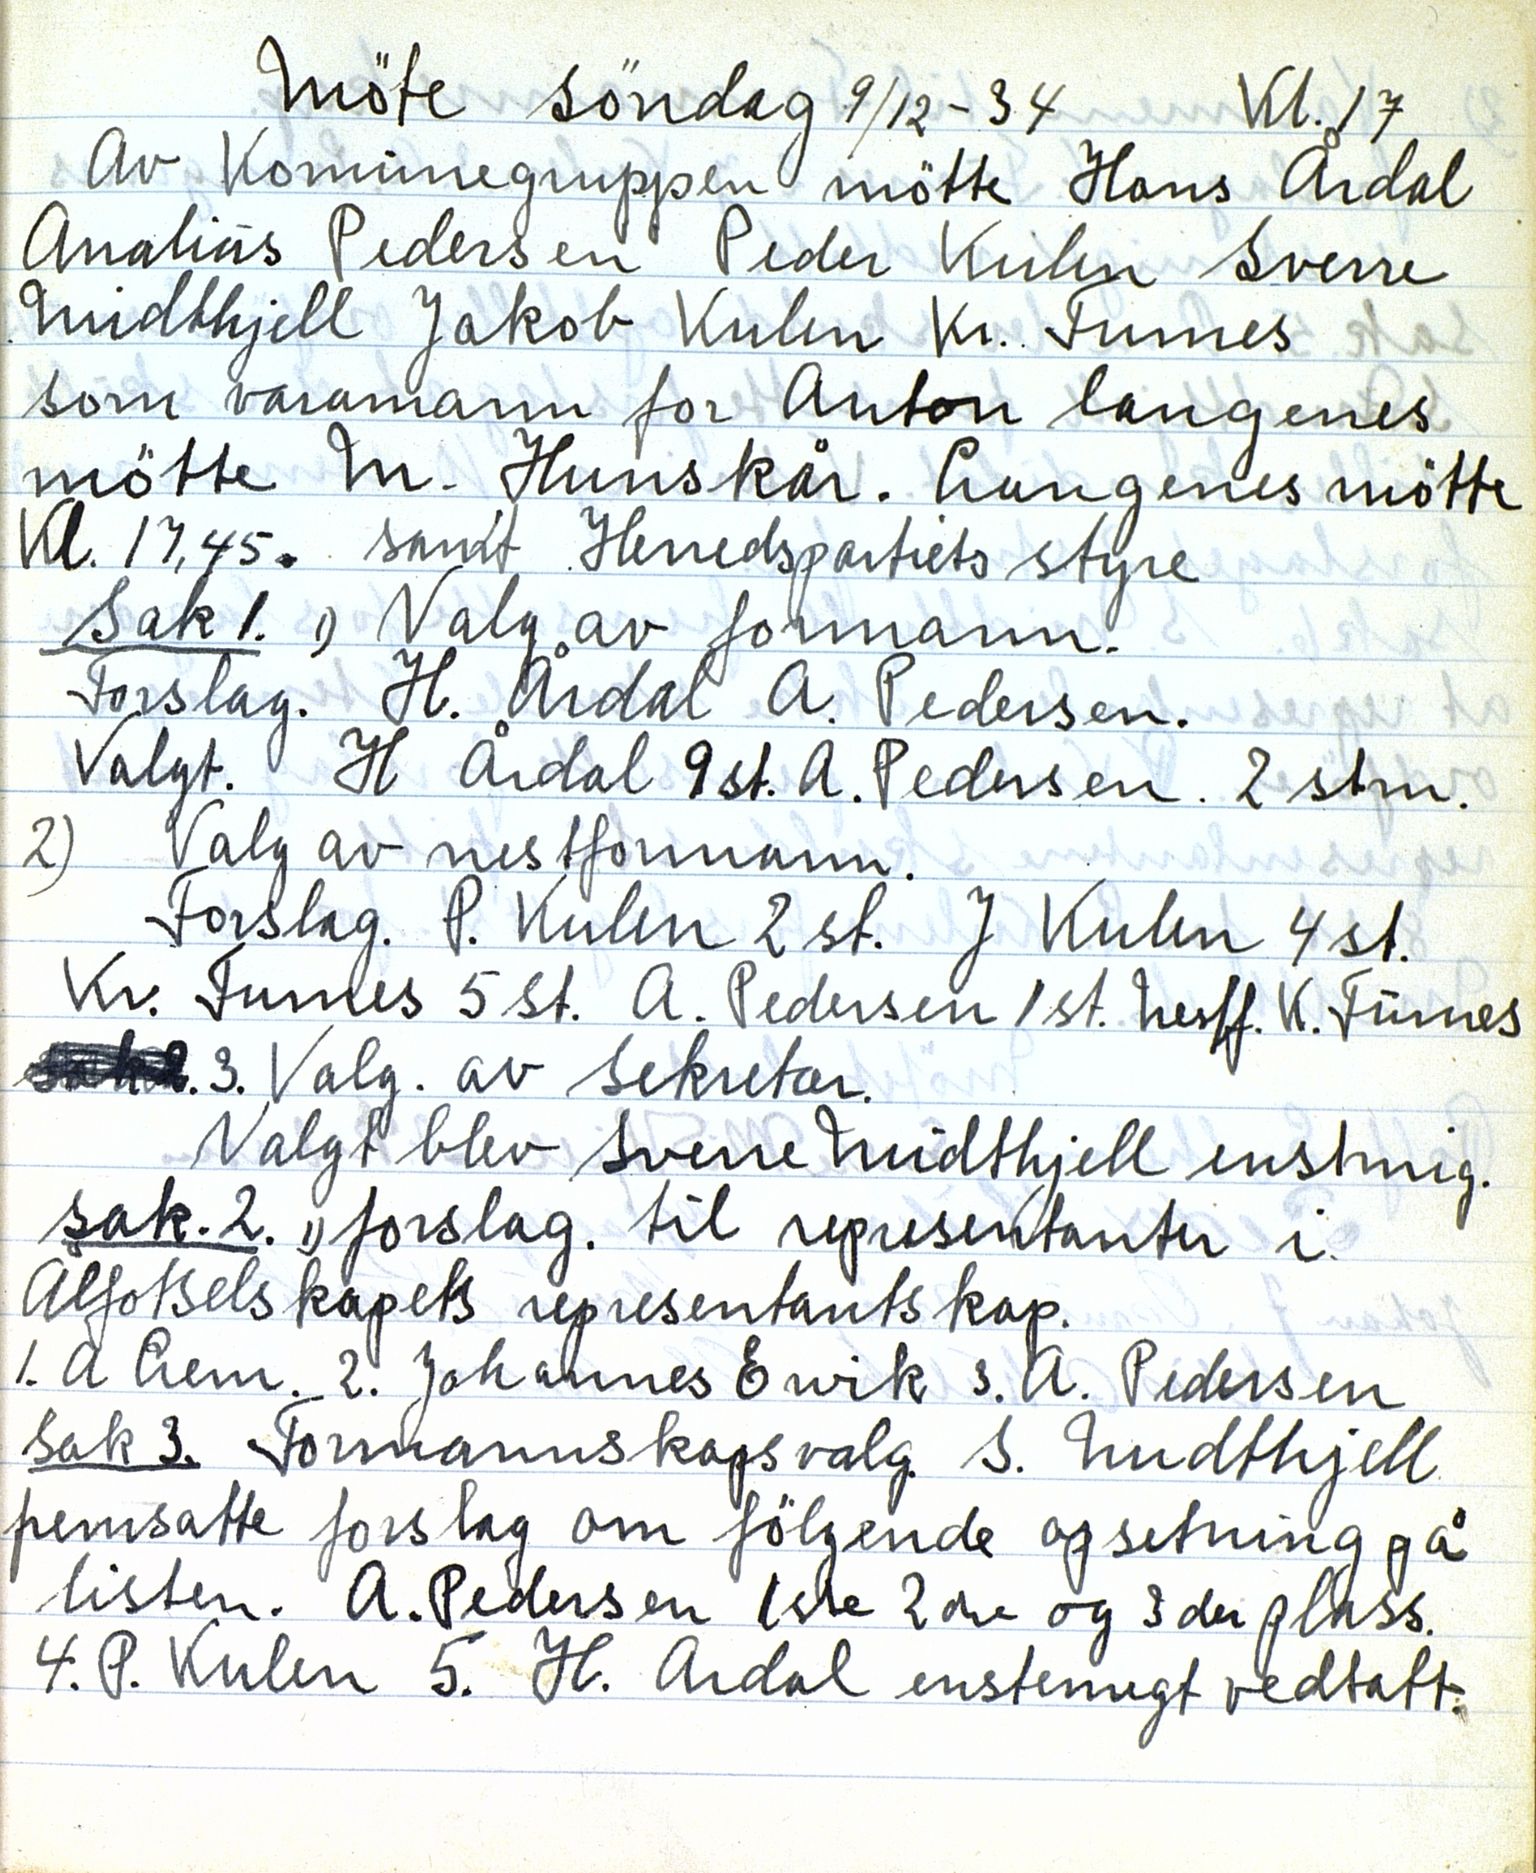 Möte söndag 9/12-34 Kl. 17
Av Komunegruppen mötte Hans Årdal
Analius Pedersen Peder Kulen Sverre
Midthjell Jakob Kulen Kr. Furnes
som varamann for Anton Langenes
mötte M. Hunskår. Langenes mötte
Kl. 17,45. samt Herredspartiets styre
Sak 1. 1) Valg av formann.
Forslag. H. Årdal A. Pedersen.
Valgt. H Årdal 9 st. A. Pedersen. 2 stm.
2) Valg av nestformann.
Forslag. P. Kulen 2 st. J Kulen 4 st.
Kr. Furnes 5 st. A. Pedersen 1 st. Nesff. K. Furnes
3. Valg. av sekretær.
Valgt blev Sverre Midthjell enstmig.
Sak. 2. 1) forslag. til representanter i
Ålfotselskapets representantskap.
1. A Lem. 2. Johannes Ervik 3. A. Pedersen
Sak 3. Formannskapsvalg S. Midthjell
fremsatte forslag om fölgende opsetning på
listen. A. Pedersen 1ste 2dre og 3der plass.
4. P. Kulen 5. H. Årdal enstemigt vedtatt.